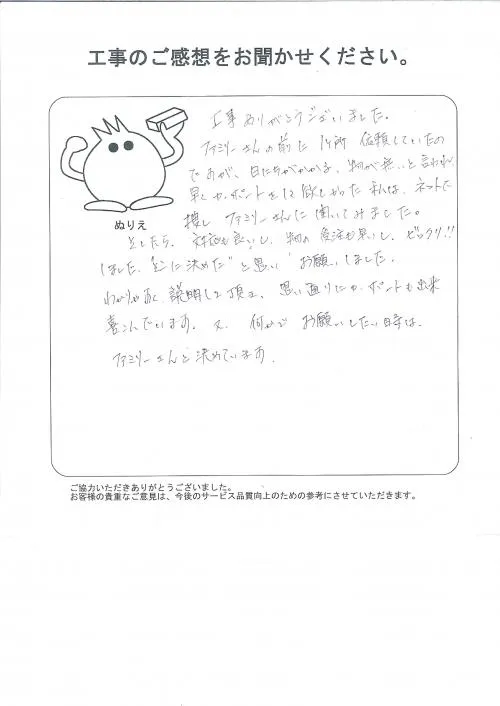 工事のご感想をお聞かせください。
工事ありがとうございました。
ファミリーさんの前に 1ヶ所 依頼していたの
ですが、日にちがかかる、物が無いと言われ、
早くカーポートを 欲しかった私は、ネットで
捜し ファミリーさんに聞いてみました。
ぬりえ
そしたら、対応も良いし、物の発注も早いし、ビックリ!!
しました。 に決めた”と思い お願いしました。
わかりやすく 説明して頂き、思い通りにカーポートも出来
喜こんでいます。又、何かで お願いしたい時は、
ファミリーさんと決めています。
ご協力いただきありがとうございました。
お客様の貴重なご意見は、今後のサービス品質向上のための参考にさせていただきます。